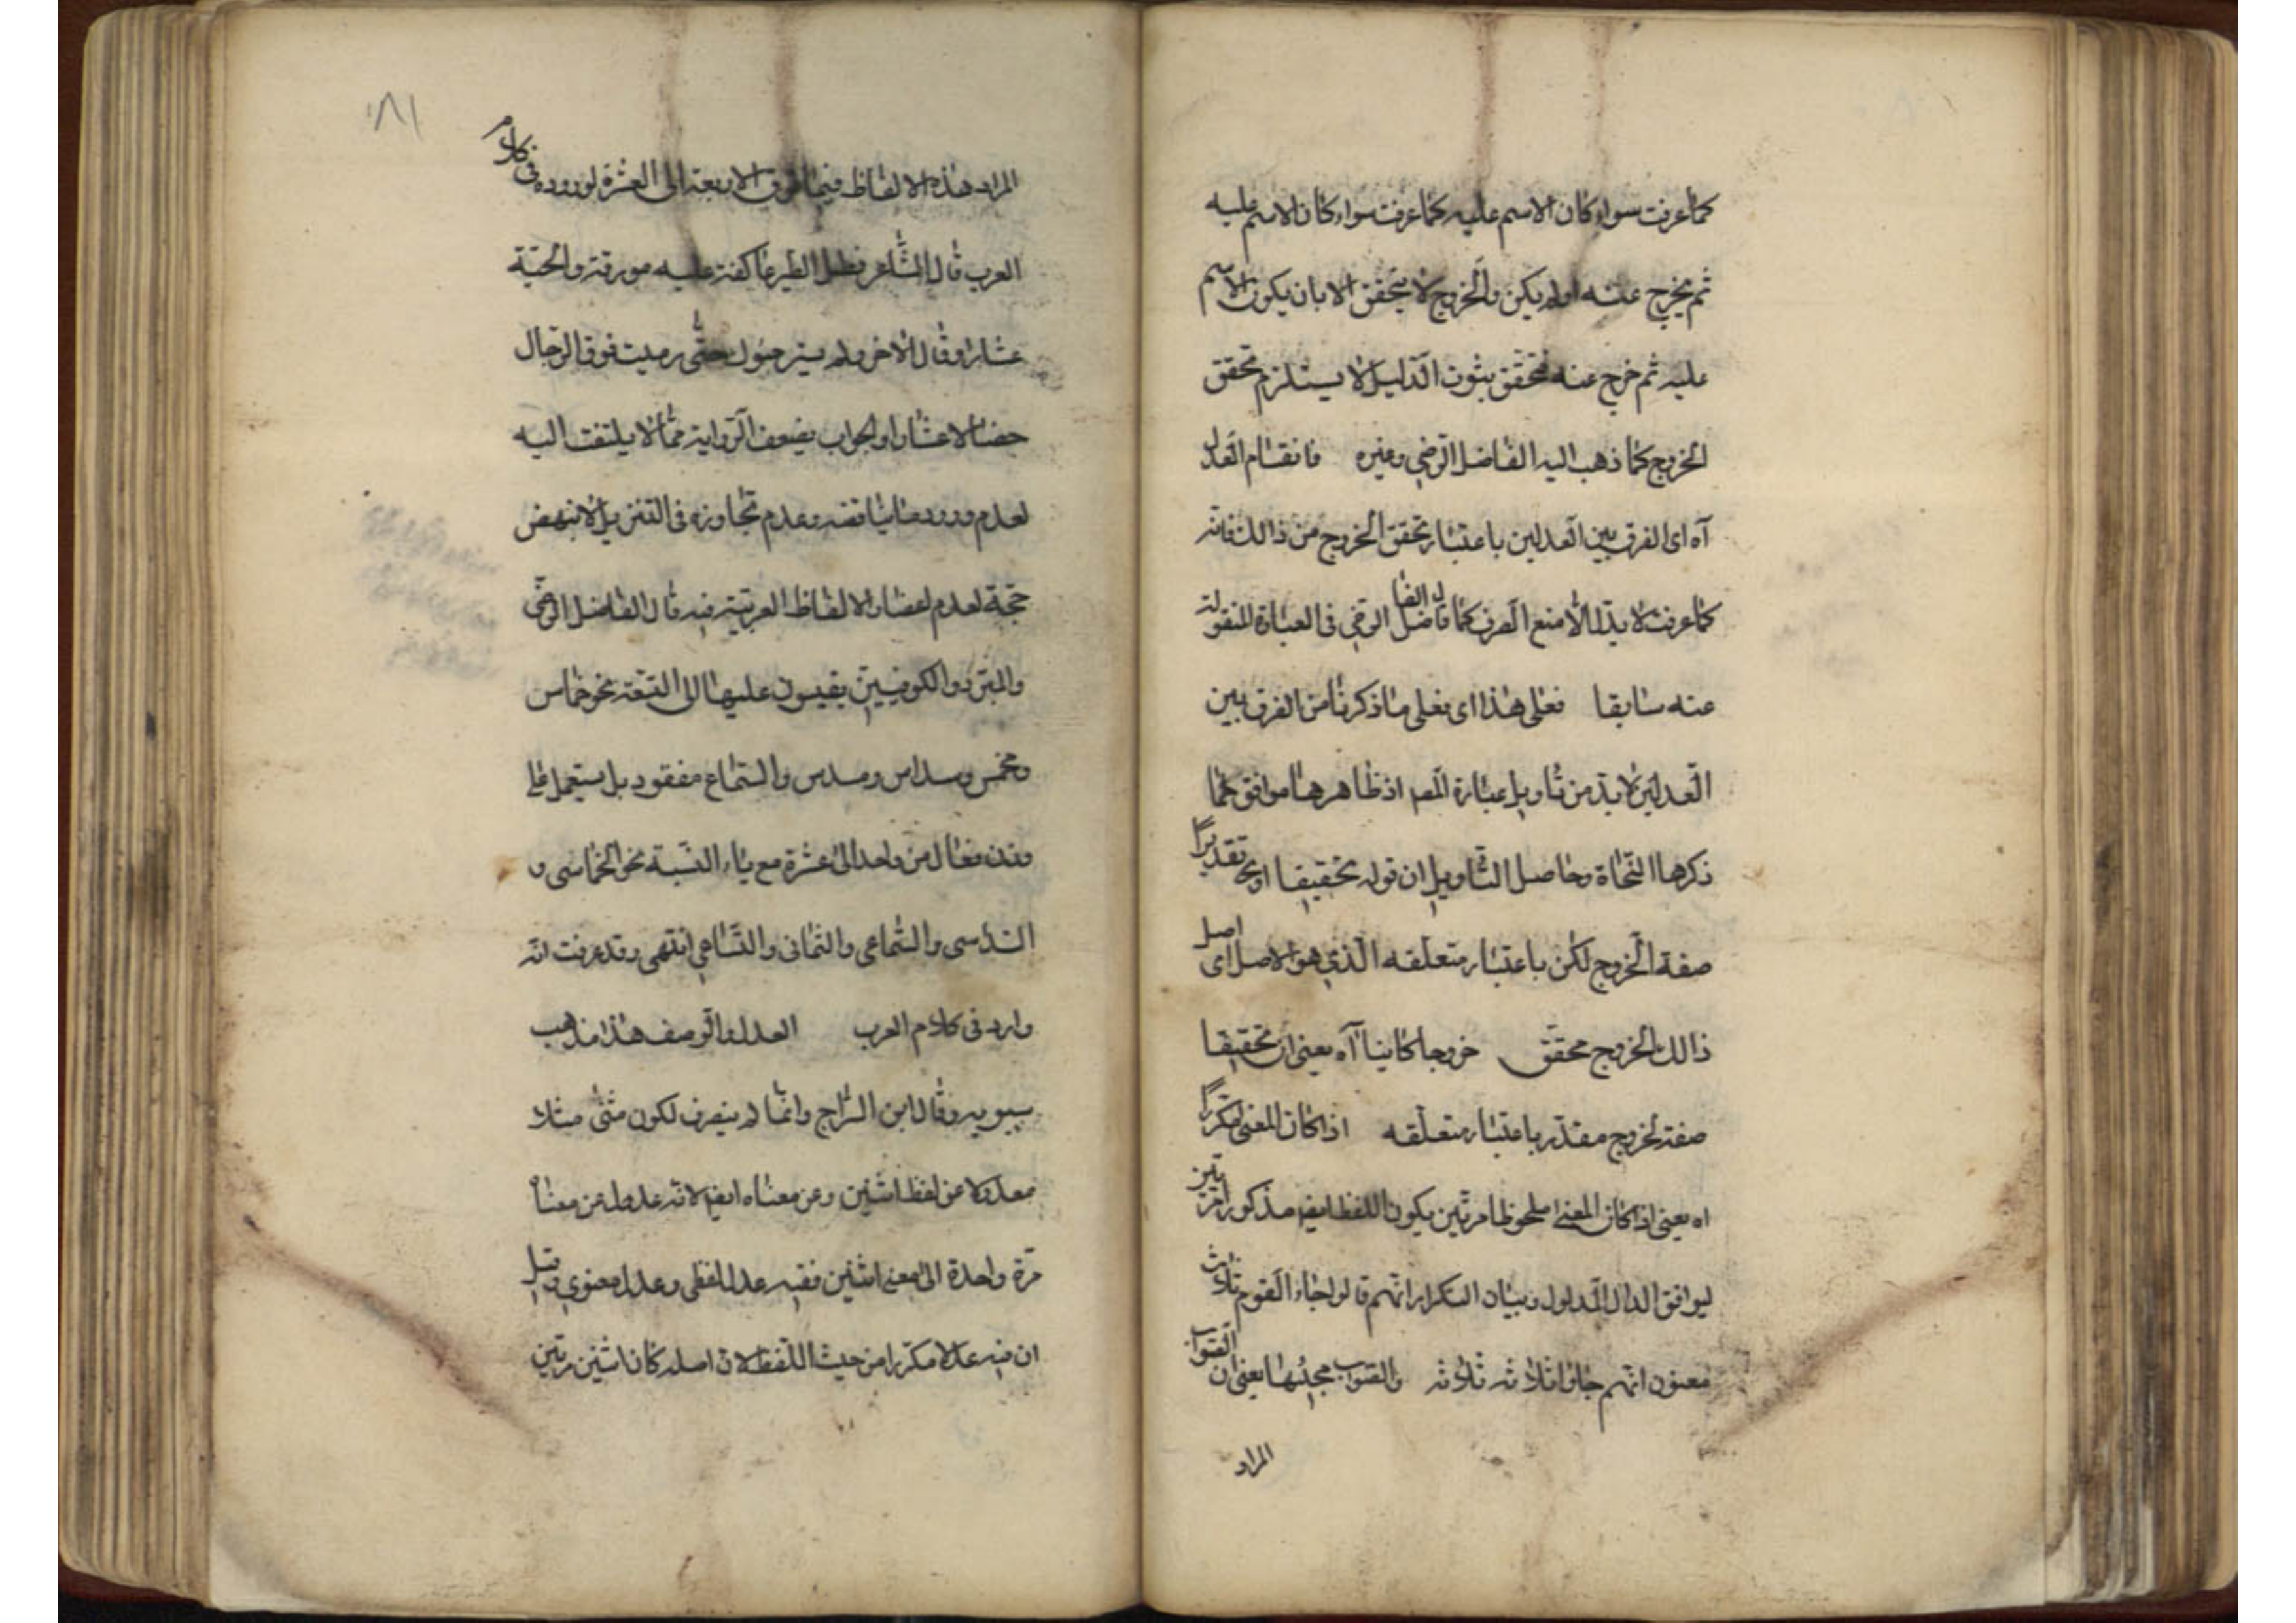 كما عرفت سواء كان الاسم عليه كما عرفت سواء كان الاسم عليه
ثم يخرج عنه او لم يكن والخروج لا يتحقق الا بان يكون الاسم
عليه ثم خرج عنه فتحقق بثون الدليل لا يستلزم تحقق
الخروج كما ذهب اليه الفاضل الرضي وغيره فانقسام العدل
آه اى الفرق بين العدلين باعتبار تحقق الخروج من ذالك فانه
كما عرفت لا يدل الا منع الصرف كما قال الفاضل الرضي في العبارة المنقولة
عنه سابقا فعلى هذا اى فعلى ما ذكرنا من الفرق بين
العدلين لا بد من تاويل عبارة المصـ اذ ظاهرها موافق كما
ذكرها النحاة وحاصل التاويل ان قوله تحقيقا او تقديرًا
صفة الخروج لكن باعتبار متعلقه الذي هو الاصل اى اصل
ذالك الخروج محقق خروجا كاينا آه يعنى ان تحقيقا
صفة لخروج مقدر باعتبار متعلقه اذا كان المعنى مكررًا
اه يعنى اذا كان المعنى ملحوظا مرتين يكون اللفظ ايضـ مذكورا مرتين
ليوافق الدال المدلول وبيان التكرار انهم قالوا جاء القوم ثلاث
معنون انهم جاؤا ثلاثه ثلاثه والصواب مجيئها يعنى ان الصواب
المراد
١٨١
المراد هذه الالفاظ فيما فوق الاربعة الى العشرة لوروده في كلام
العرب قال الشاعر فظل الطير عاكفة عليه مورقة والحية
عشارا وقال الآخر ولم يستر حتى رميت فوق الرجال
خصالا عشارا والجواب بضعف الرواية مما لا يلتفت اليه
لعدم ورود ما يناقضه وعدم تجاوزه فى التنزيل لا ينهض
حجة لعدم انحصار الالفاظ العربية فيه قال الفاضل الرضي
والمبرد والكوفيين يقيسون عليها الى التسعة نحو خماس
ومخمس وسداس ومسدس والسماع مفقود بل يستعمل على
وزن فعال من واحد الى عشرة مع ياء النسبة نحو الخماسى و
السداسى والسباعى والثمانى والتساعى انتهى وقد عرفت انه
وارد فى كلام العرب العدل والوصف هذا مذهب
سيبويه وقال ابن السراج وانما لم ينصرف لكون مثنى مثلا
معدولا عن لفظ اثنين وعن معناه ايضـ لانه عدل عن معناه
مرة واحدة الى معنى اثنين ففيه عدل لفظى وعدل معنوى وقيل
ان فيه عدلا مكررا من حيث اللفظ لان اصله كان اثنين مرتين